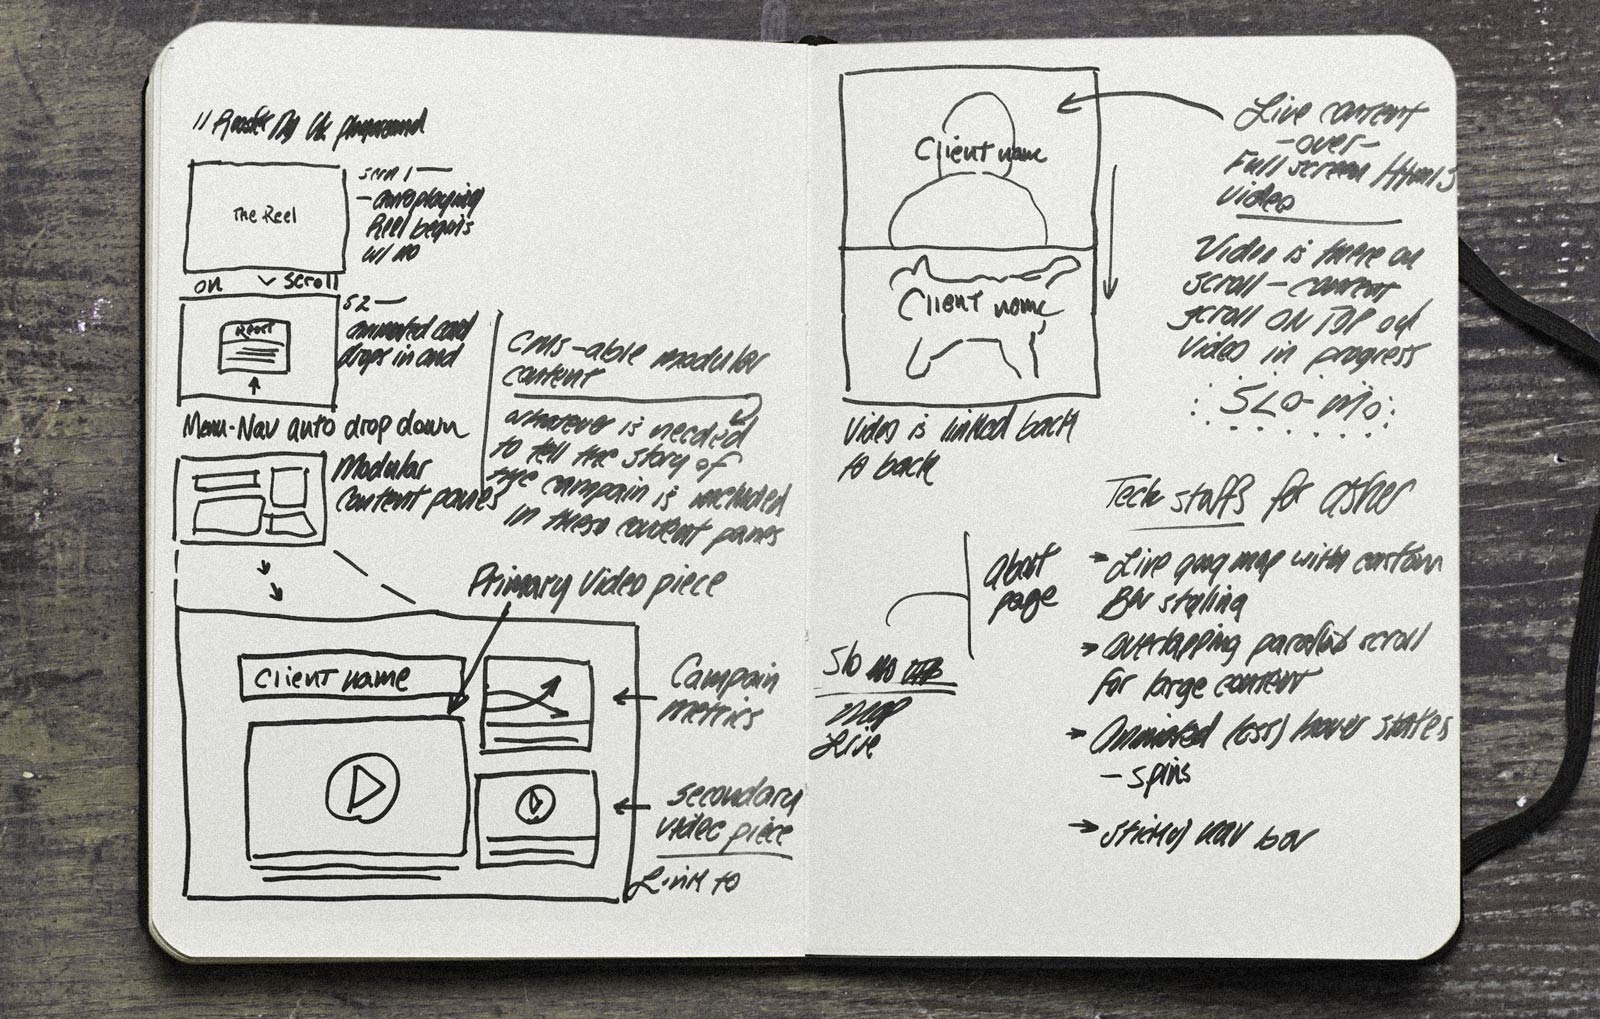 playground
The Reel
scrn 1 —
- autoplaying
Reel begins
w/ no
on scroll
S2 —
animated card
drops in and
Menu-Nav auto drop down
Modular
content panes
CMS-able modular
content
whatever is needed
to tell the story of
the campain is included
in these content panes
Primary Video piece
Client name
Campain
metrics
secondary
video piece
Link to
Client name
Client name
Video is linked back
to back
Live content
- over -
Full screen Html5
video
Video is there on
scroll - content
scroll ON TOP of
video in progress
SLO-MO
Tech stuffs for asher
about
page
Slo mo
map
Live
→ Live goog map with custom
BW styling
→ overlapping parallax scroll
for large content
→ Animated (css) hover states
- spins
→ sticky nav bar